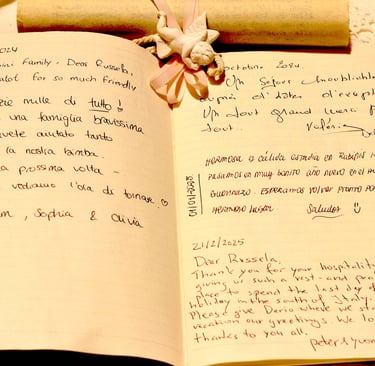 2024
Family. Dear Russela,
lot for so much friendly
mille di tutto!
una famiglia bravissima
aiutato tanto
la nostra bimba.
prossima volta -
vediamo l'ora di tornare.
, Sophia & Olivia
octobre 2024.
Un Séjour inoubliable
d'êtres d'excep
Un tout grand merci p
tout. Valérie
HERMOSA & CÁLIDA ESTADÍA EN
PASAMOS EN MUY BONITO AÑO NUEVO EN EL A
BUONANZO. ESPERAMOS VOLVER PRONTO POR
HERMOSO LUGAR Saludos
01/01/2025
21/2/2025
Dear Russela.
Thank you for your hospitality
giving us such a rest- and pea
place to spend the last day of
holiday in the south of Italy.
Please give Dario where we st
vacation our greetings. We lo
thanks to you all.
peter & yvon